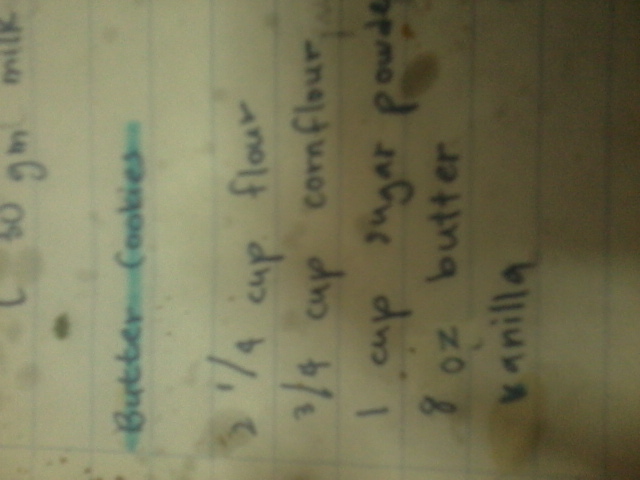 50 gm milk
Butter Cookies
2 1/4 cup flour
3/4 cup cornflour
1 cup sugar powde
8 oz butter
vanilla